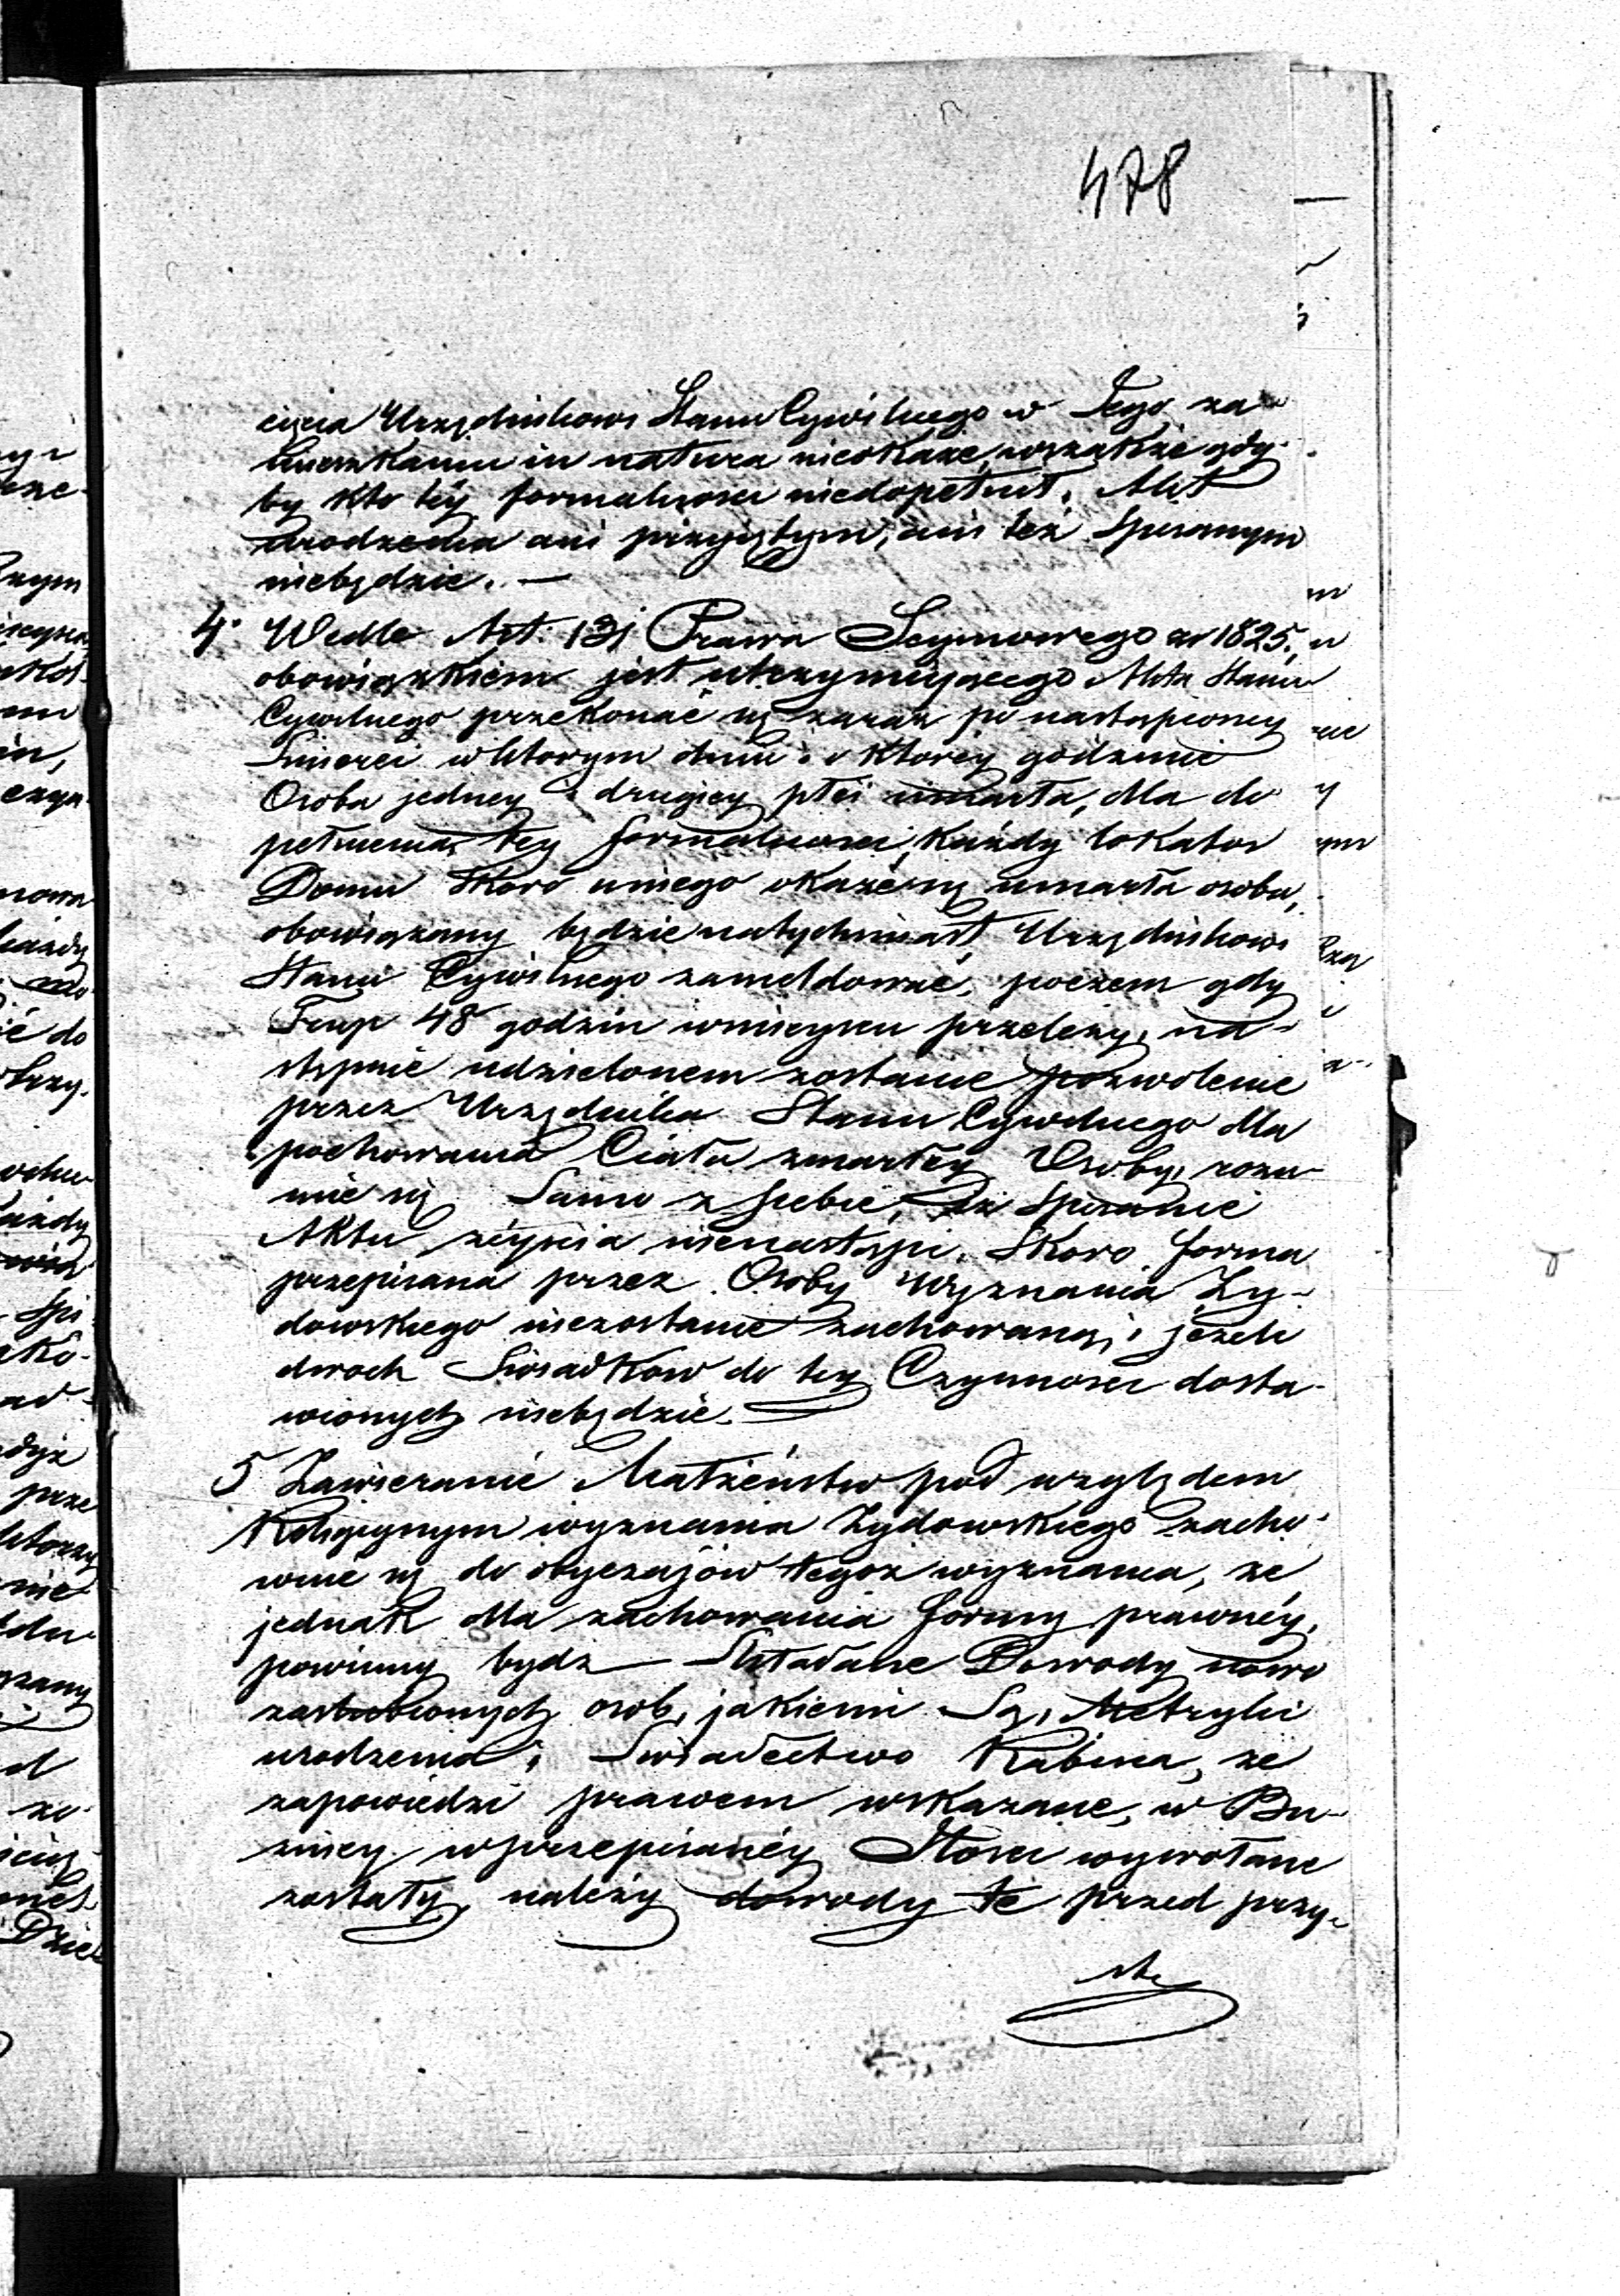 478
cięcia Urzędnikowi Stanu Cywilnego w Jego za-
mieszkaniu in natura nieokaże, wszakże gdy-
by kto téy formalności niedopełnił, Akt
urodzenia ani przyjętym, ani też spisanym
niebędzie. —
4. Wedle Art. 131 Prawa Seymowego z r 1825,
obowiązkiem jest utrzymującego Akta Stanu
Cywilnego przekonać się zaraz po nastąpioney
Śmierci w którym dniu i o któréy godzinie
Osoba jedney i drugiey płci umarła, dla do
pełnienia tey formalności, każdy lokator
Domu skoro uniego okaże się umarła osoba,
obowiązany będzie natychmiast Urzędnikowi
Stanu Cywilnego zameldować, poczem gdy
Trup 48 godzin wmieyscu przeleży, na-
stępnie udzielonem zostanie pozwolenie
przez Urzędnika Stanu Cywilnego dla
pochowania Ciała zmarłéy Osoby, rozu-
mie się Samo z siebie, że spisanie
Aktu zeyścia nienastąpi, Skoro forma
przepisana przez Osoby Wyznania Ży-
dowskiego niezostanie zachowaną, i jeżeli
dwóch Świadków do tey Czynności dosta-
wionych niebędzie.
5 Zawieranie Małżeństw pod względem
Religiynym wyznania Żydowskiego zacho-
wuie się do obyczajów tegoż wyznania, że
jednak dla zachowania formy prawnéy,
powinny bydz Składane Dowody nowo
zaślubionych osób, jakiemi Są, Metryki
urodzenia i Świadectwo Rabina, że
zapowiedzi prawem wskazane, w Bu-
żnicy wprzepisanéy Ilości wywołane
zostały, należy dowody te przed przy-
stą